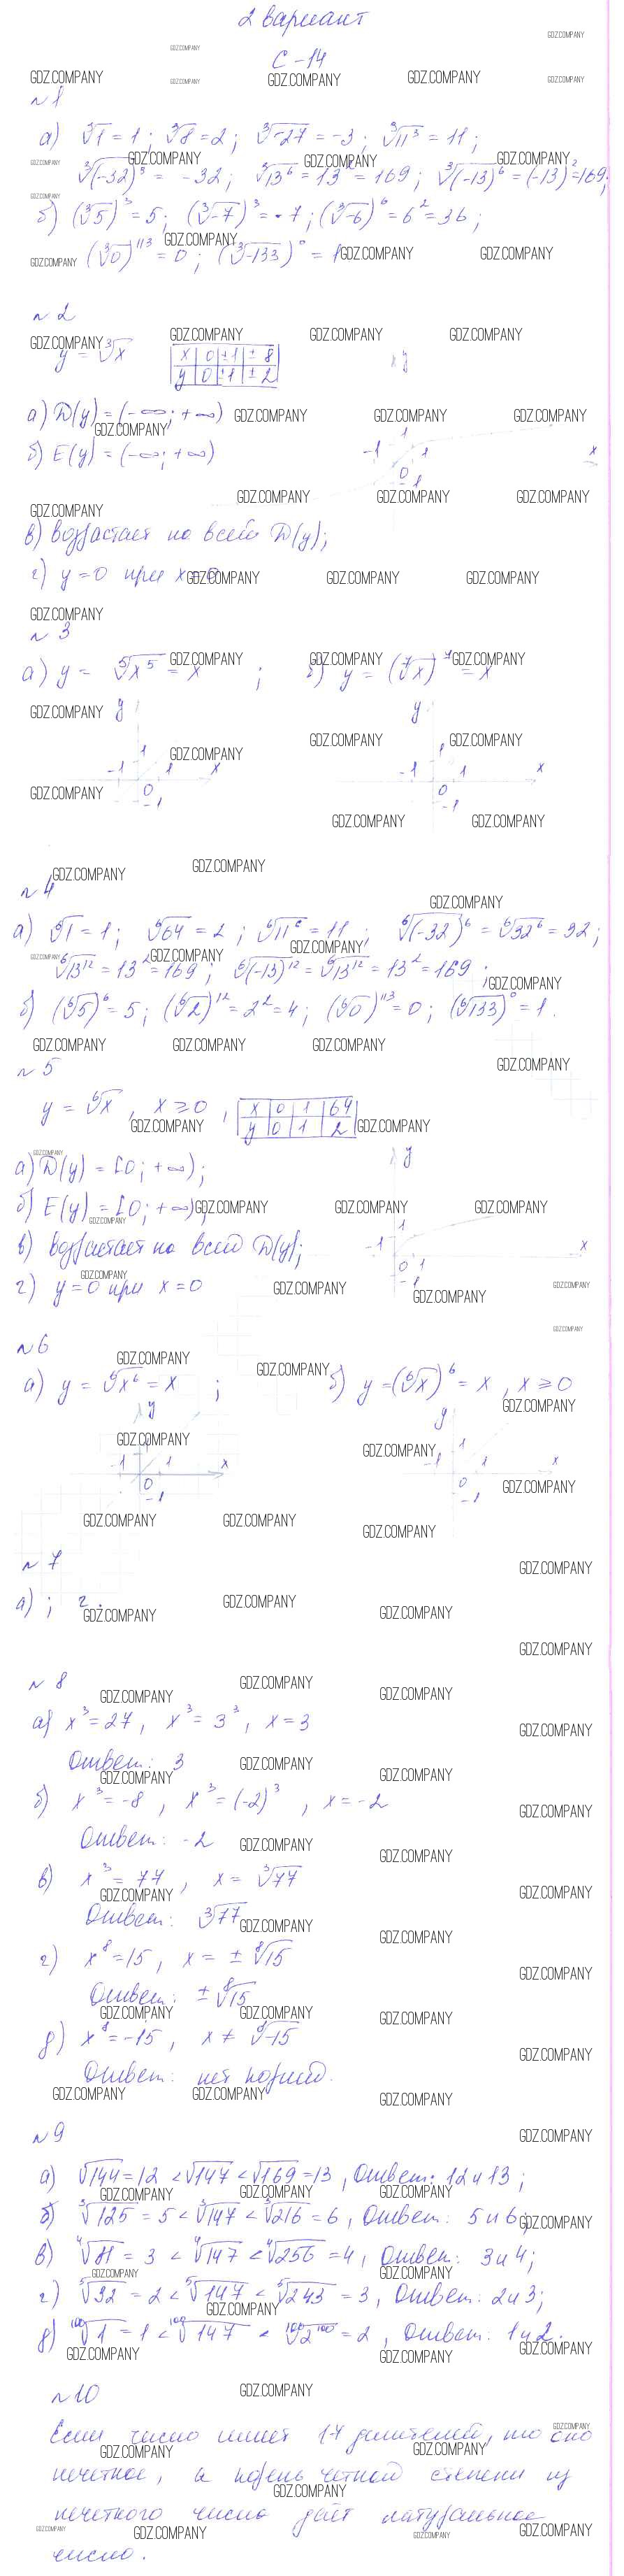 2 вариант
С-14
№1
а) ∛1 = 1; ∛8 = 2; ∛-27 = -3; ∛11³ = 11;
∛(-32)³ = -32; ∛13⁶ = 13² = 169; ∛(-13)⁶ = (-13)² = 169;
б) (∛5)³ = 5; (∛-7)³ = -7; (∛-6)⁶ = 6² = 36;
(∛0)¹¹³ = 0; (∛-133)⁰ = 1
№2
y = ∛x
x 0 ±1 ±8
y 0 ±1 ±2
а) D(y) = (-∞; +∞)
б) E(y) = (-∞; +∞)
в) возрастает на всей D(y);
г) y=0 при x=0
№3
а) y = ⁵√x⁵ = x ; б) y = (⁷√x)⁷ = x
№4
а) ⁶√1 = 1; ⁶√64 = 2; ⁶√11⁶ = 11; ⁶√(-32)⁶ = ⁶√32⁶ = 32;
⁶√13¹² = 13² = 169; ⁶√(-13)¹² = ⁶√13¹² = 13² = 169;
б) (⁶√5)⁶ = 5; (⁶√2)¹² = 2² = 4; (⁶√0)¹¹³ = 0; (⁶√133)⁰ = 1.
№5
y = ⁶√x, x ≥ 0,
x 0 1 64
y 0 1 2
а) D(y) = [0; +∞);
б) E(y) = [0; +∞);
в) возрастает на всей D(y);
г) y=0 при x=0
№6
а) y = ⁶√x⁶ = x ; б) y = (⁶√x)⁶ = x, x ≥ 0
№7
а) ; г.
№8
а) x³ = 27, x³ = 3³, x = 3
Ответ: 3
б) x³ = -8, x³ = (-2)³, x = -2
Ответ: -2
в) x³ = 77, x = ∛77
Ответ: ∛77
г) x⁸ = 15, x = ± ⁸√15
Ответ: ± ⁸√15
д) x⁸ = -15, x ≠ ⁸√-15
Ответ: нет корней.
№9
а) √144 = 12 < √147 < √169 = 13, Ответ: 12 и 13;
б) ∛125 = 5 < ∛147 < ∛216 = 6, Ответ: 5 и 6;
в) ⁴√81 = 3 < ⁴√147 < ⁴√256 = 4, Ответ: 3 и 4;
г) ⁵√32 = 2 < ⁵√147 < ⁵√243 = 3, Ответ: 2 и 3;
д) ¹⁰⁰√1 = 1 < ¹⁰⁰√147 < ¹⁰⁰√2¹⁰⁰ = 2, Ответ: 1 и 2.
№10
Если число имеет 17 делителей, то оно
нечетное, а корень четной степени из
нечетного числа даёт натуральное
число.
GDZ.COMPANY